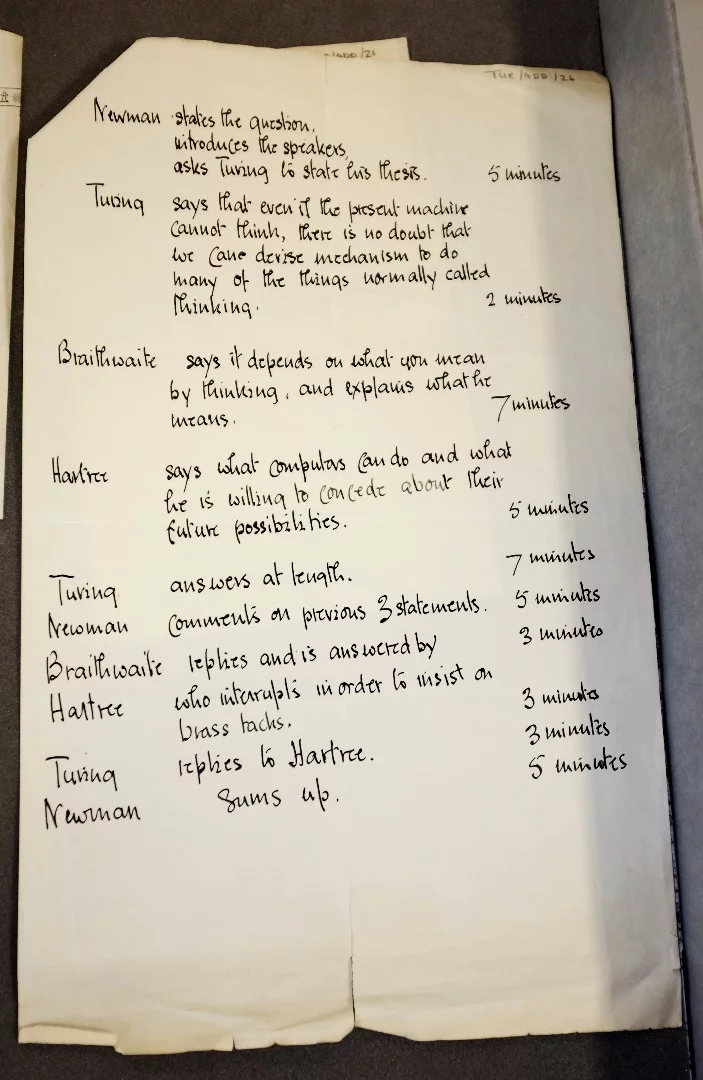 /ADD/26
TUR/ADD/26
Newman states the question,
introduces the speakers,
asks Turing to state his thesis. 5 minutes
Turing says that even if the present machine
cannot think, there is no doubt that
we cane devise mechanism to do
many of the things normally called
thinking. 2 minutes
Braithwaite says it depends on what you mean
by thinking, and explains what he
means. 7 minutes
Hartree says what computers can do and what
he is willing to concede about their
future possibilities. 5 minutes
Turing answers at length. 7 minutes
Newman comments on previous 3 statements. 5 minutes
Braithwaite replies and is answered by 3 minutes
Hartree who interrupts in order to insist on
brass tacks. 3 minutes
Turing replies to Hartree. 3 minutes
Newman sums up. 5 minutes